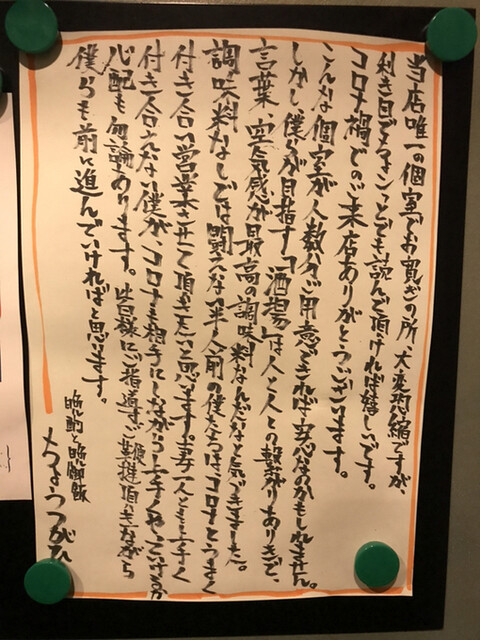 当店唯一の個室でお寛ぎの所、大変恐縮ですが、
利き目でチラッとでも読んで頂ければ嬉しいです。
コロナ禍でのご来店ありがとうございます。
こんな個室が人数分ご用意できれば安心なのかもしれません。
しかし、僕らが目指す「酒場」は人と人との繋がりありきで、
言葉、空気感が最高の調味料なんだなと気づきました。
調味料なしでは闘えない半人前の僕たちはコロナとうまく
付き合い営業させて頂きたいと思います。妻一人ともうまく
付き合えない僕が、コロナも相手にしながら上手くやっていけるか
心配も勿論あります。皆様にご指導、ご鞭撻頂きながら
僕らも前に進んでいければと思います。
晩酌と晩御飯